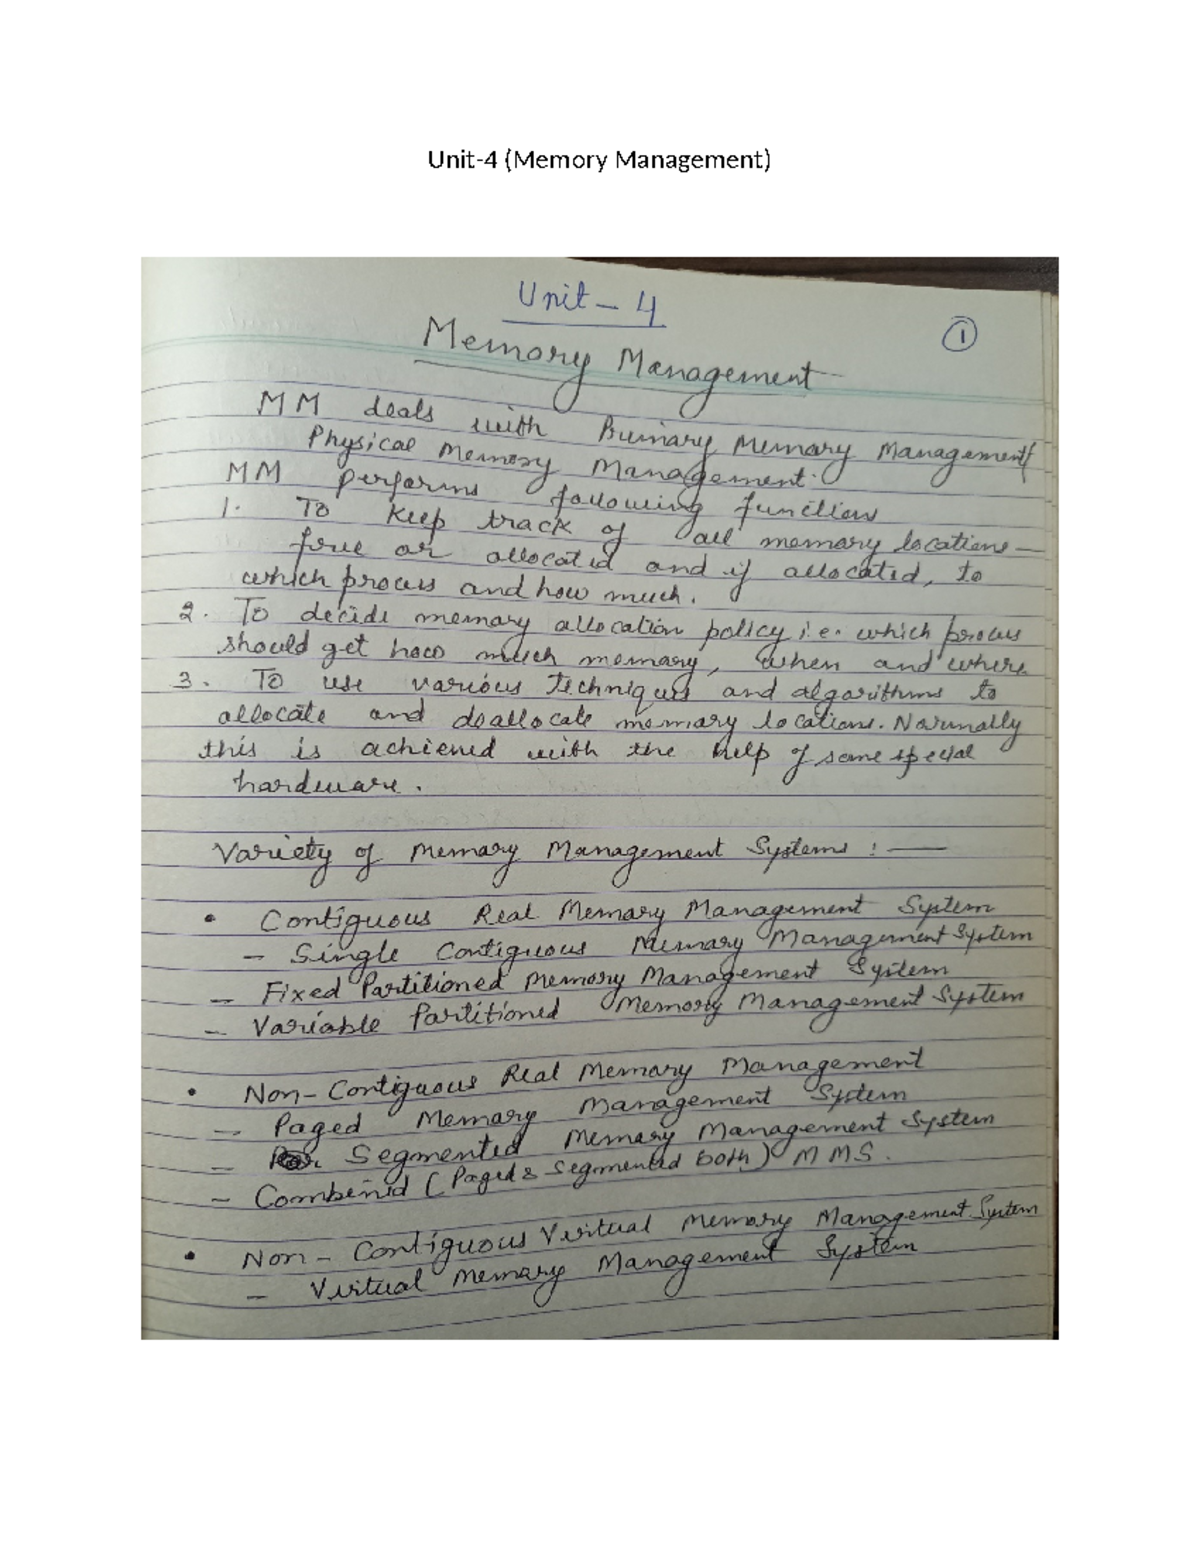 Unit-4 (Memory Management)
Unit - 4
①
Memory Management
MM deals with Primary Memory Management/
Physical Memory Management.
MM performs following functions
1. To keep track of all memory locations —
free or allocated and if allocated, to
which process and how much.
2. To decide memory allocation policy i.e. which process
should get how much memory, when and where.
3. To use various Techniques and algorithms to
allocate and deallocate memory locations. Normally
this is achieved with the help of some special
hardware.
Variety of Memory Management Systems : —
• Contiguous Real Memory Management System
- Single Contiguous Memory Management System
- Fixed Partitioned Memory Management System
- Variable Partitioned Memory Management System
• Non-Contiguous Real Memory Management
- Paged Memory Management System
- Segmented Memory Management System
- Combined (Paged & Segmented both) MMS.
• Non - Contiguous Virtual Memory Management System
- Virtual Memory Management System